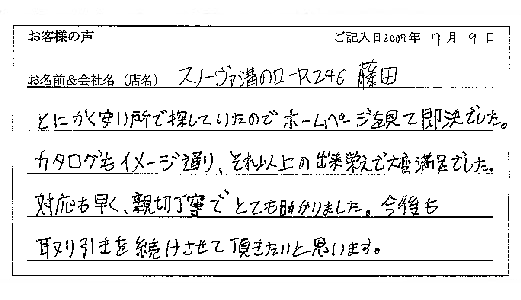 お客様の声 ご記入日2009年 7月 9日
お名前&会社名（店名） スノーヴァ溝の口-R246 藤田
とにかく安い所で探していたのでホームページを見て即決でした。
カタログもイメージ通り、それ以上の出来栄えで大満足でした。
対応も早く、親切丁寧でとても助かりました。今後も
取り引きを続けさせて頂きたいと思います。